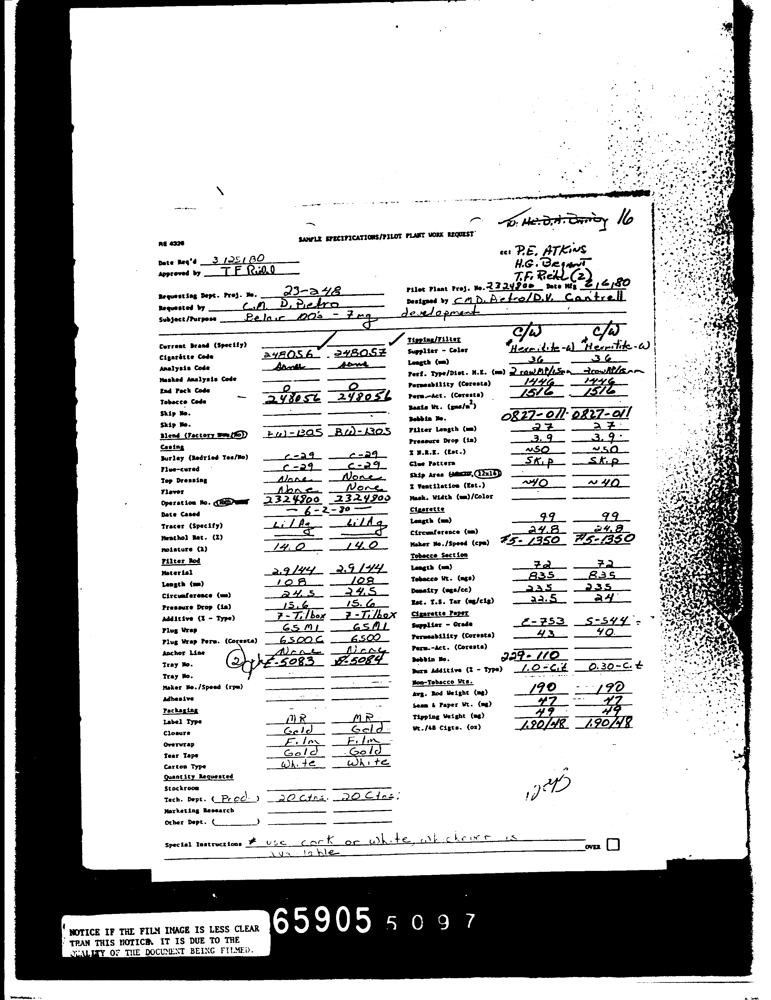 16
RE 4328
SAMPLE SPECIFICATIONS/PILOT PLANT WORK REQUEST
cc: P.E. ATKINS
H.G. Begani
T.F. Riehl (2)
Date Req'd 3/25/80
Approved by T F Riehl
Requesting Dept. Proj. No. 23-248
Requested by C.M. D. Pietro
Subject/Purpose Belair 100's - 7mg development
Pilot Plant Proj. No. 2324800 Date Mfg 2/6/80
Designed by C.M.D. Pietro/D.V. Cantrell
Current Brand (Specify)
Cigarette Code 248056 248057
Analysis Code Same Same
Masked Analysis Code
End Pack Code 0 0
Tobacco Code 248056 248056
Skip No.
Skip No.
Blend (Factory B(W)-1305 B(W)-1305
Casing
Burley (Redried Yes/No) C-29 C-29
Flue-cured C-29 C-29
Top Dressing None None
Flavor None None
Operation No. 2324800 2324800
Date Cased 6-2-80
Tracer (Specify) Li/Ag Li/Ag
Menthol Rat. (%)
Moisture (%) 14.0 14.0
Filter Rod
Material 2.9/44 2.9/44
Length (mm) 108 108
Circumference (mm) 24.5 24.5
Pressure Drop (in) 15.6 15.6
Additive (% - Type) 7-T.lbox 7-T.lbox
Plug Wrap 65M1 65M1
Plug Wrap Perm. (Coresta) 6500C 6500
Anchor Line None None
Tray No. 2 F-5083 F-5084
Tray No.
Maker No./Speed (rpm)
Adhesive
Packaging
Label Type MR MR
Closure Gold Gold
Overwrap Film Film
Tear Tape Gold Gold
Carton Type White White
Quantity Requested
Stockroom
Tech. Dept. (Prod.) 20 Ctns. 20 Ctns.
Marketing Research
Other Dept. ( )
Special Instructions * use cork or white, whichever is
available
OVER
C/W C/W
Tipping/Filter
Supplier - Color *Hermitite-W *Hermitite-W
Length (mm) 36 36
Perf. Type/Dist. M.E. (mm) 2 row 2 row
Permeability (Coresta) 1446 1446
Perm.-Act. (Coresta) 1516 1516
Basis Wt. (gms/m²)
Bobbin No. 0827-011 0827-011
Filter Length (mm) 27 27
Pressure Drop (in) 3.9 3.9
% N.R.E. (Est.) ~50 ~50
Glue Pattern Skip Skip
Skip Area (12x16)
% Ventilation (Est.) ~40 ~40
Mask. Width (mm)/Color
Cigarette
Length (mm) 99 99
Circumference (mm) 24.8 24.8
Maker No./Speed (cpm) #5-1350 #5-1350
Tobacco Section
Length (mm) 72 72
Tobacco Wt. (mgs) 835 835
Density (mgs/cc) 235 235
Est. T.S. Tar (mg/cig) 23.5 24
Cigarette Paper
Supplier - Grade E-753 S-544
Permeability (Coresta) 43 40
Perm.-Act. (Coresta)
Bobbin No. 229-110
Burn Additive (% - Type) 1.0-Cit 0.30-Cit
Non-Tobacco Wts.
Avg. Rod Weight (mg) 190 190
Seam & Paper Wt. (mg) 47 47
Tipping Weight (mg) 49 49
Wt./48 Cigts. (oz) 1.90/48 1.90/48
NOTICE IF THE FILM IMAGE IS LESS CLEAR
THAN THIS NOTICE, IT IS DUE TO THE
QUALITY OF THE DOCUMENT BEING FILMED.
65905 5097